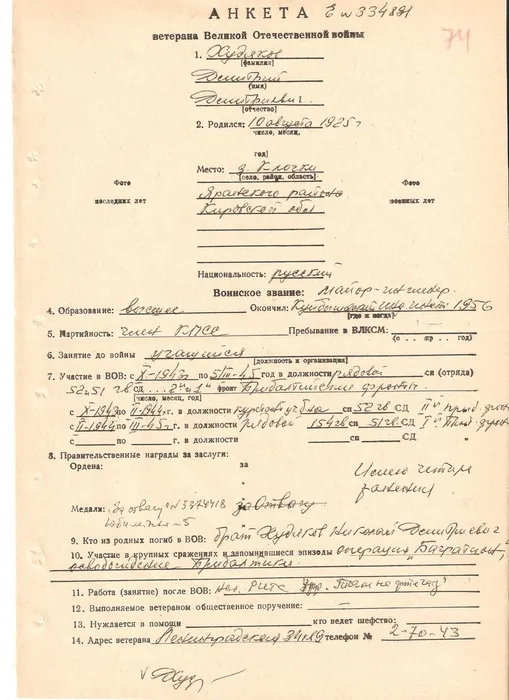 АНКЕТА Е № 334891
74
ветерана Великой Отечественной войны
1. Худяков
(фамилия)
Дмитрий
(имя)
Дмитриевич.
(отчество)
2. Родился: 10 августа 1925 г
число, месяц,
год)
Место: д. Клочки
(село, район, область)
Фото последних лет
Яранского района
Фото военных лет
Кировской обл
Национальность: русский
Воинское звание: майор-инженер.
4. Образование: высшее Окончил: 1956
(где и когда)
5. Партийность: член КПСС Пребывание в ВЛКСМ: —
(с . . . по . . . год)
6. Занятие до войны учащийся
(должность и организация)
7. Участие в ВОВ: с X-1943 по 5/III-45 год в должности рядовой сп (отряда)
52 и 51 гв сд 2 и 1 фронт Прибалтийские фронты.
(число, месяц, год)
с X-1943 по II-1944 г. в должности сп 52 гв СД II
с II-1944 по III-45 г. в должности рядовой 154 гв сп 51 гв СД I
с по г. в должности сп СД "
8. Правительственные награды за заслуги:
Ордена: за
"
Имею четыре
ранения
Медали: За отвагу № 3374418 за Отвагу
Юбилейных-5
9. Кто из родных погиб в ВОВ: брат Худяков Николай Дмитриевич
10. Участие в крупных сражениях и запомнившиеся эпизоды операция "Багратион",
освобождение Прибалтики.
11. Работа (занятие) после ВОВ:
12. Выполняемое ветераном общественное поручение: —
13. Нуждается в помощи кто ведет шефство:
14. Адрес ветерана Ленинградская телефон № 2-70-43